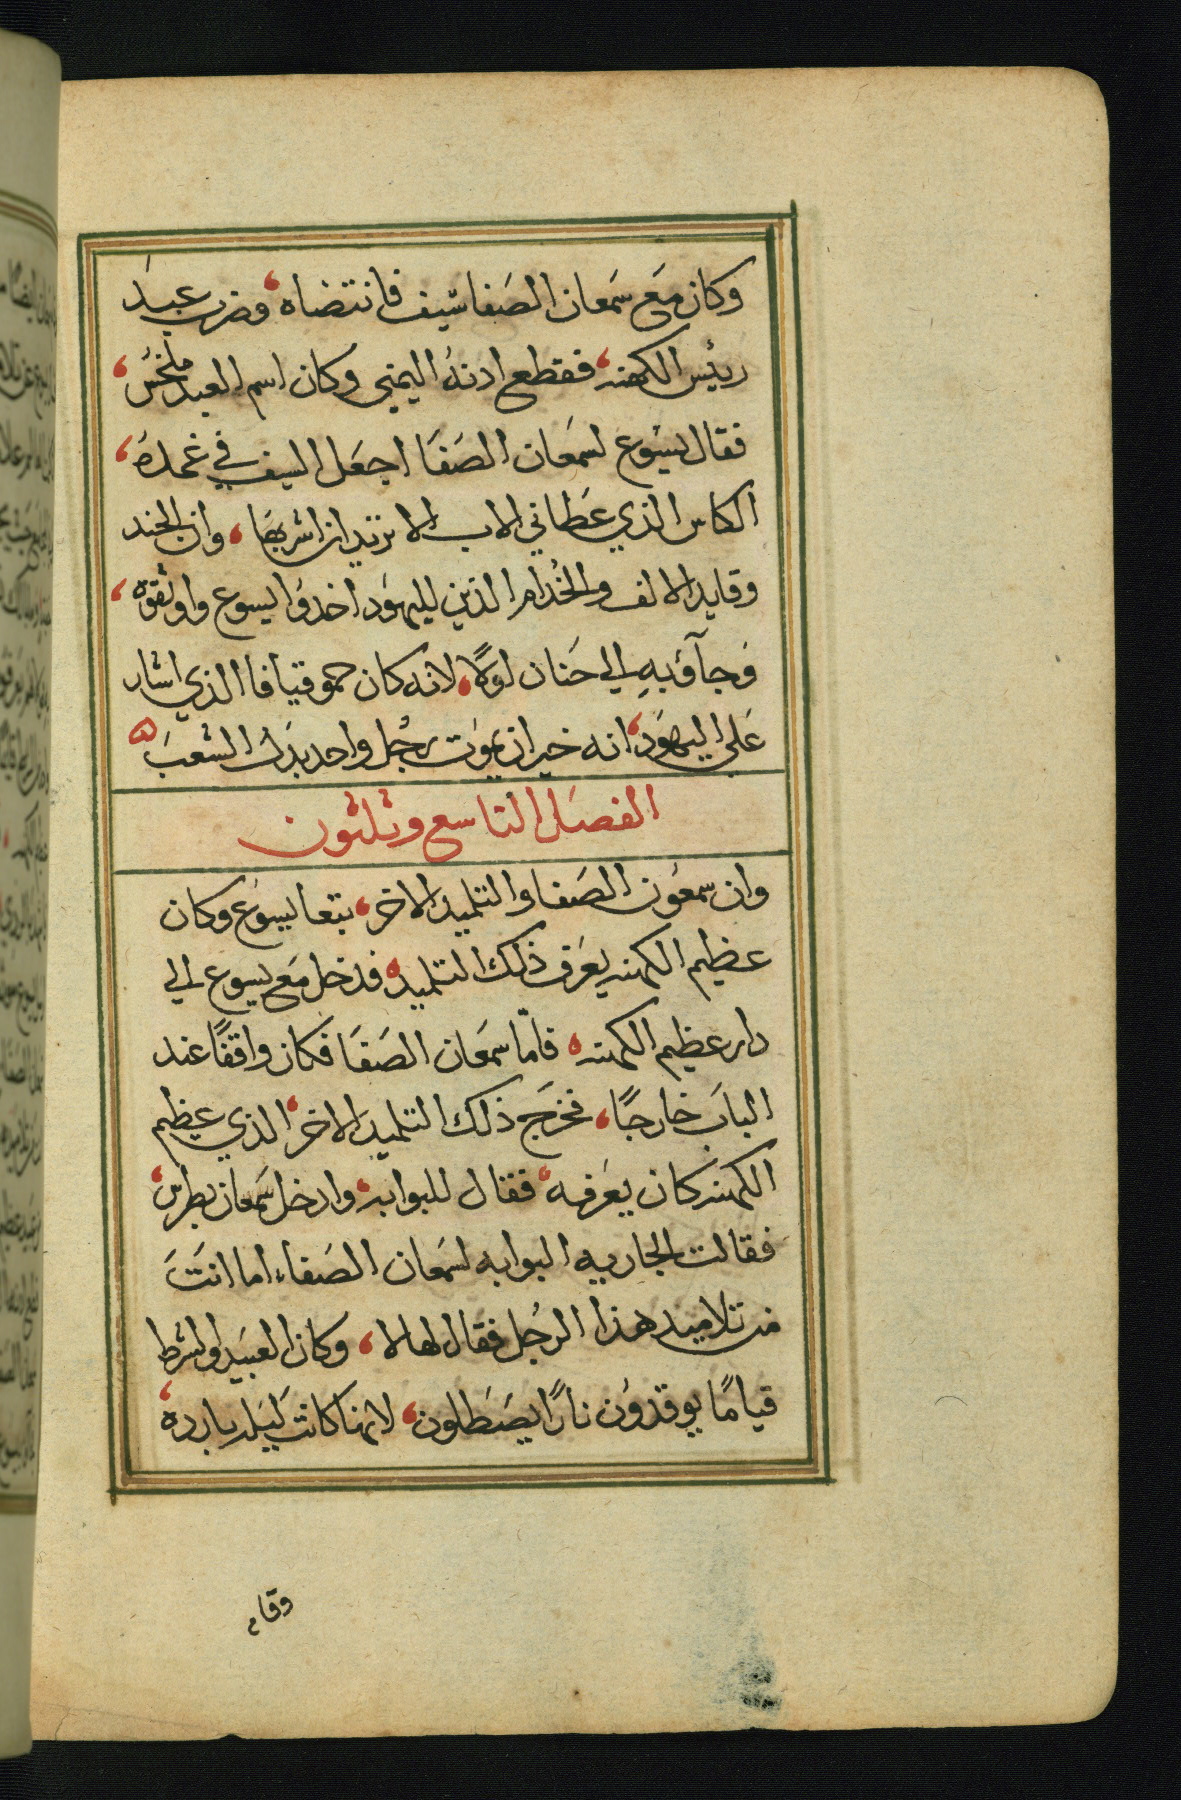 وكان مع سمعان الصفا سيف فانتضاه، وضرب عبد
رئيس الكهنه، فقطع ادنهُ اليمني وكان اسم العبد ملخس،
فقال يسوع لسمعان الصفا اجعل السيف في غمده،
الكاس الذي عطاني الاب الا تريد ان اشربها، وان الجند
وقايد الالف والخدام الذين لليهود اخدوا يسوع واوثقوه،
وجآؤ به الي حنان اولًا، لانه كان حمو قيافا الذي اشار
علي اليهود، انه خير ان يموت رجل واحد بدل الشعب ه
الفصل التاسع وثلثون
وان سمعون الصفا والتلميد الاخر، بتعا يسوع وكان
عظيم الكهنه يعرف ذلك التلميد، فدخل مع يسوع الي
دار عظيم الكهنه، فامّا سمعان الصفا فكان واقفًا عند
الباب خارجًا، فخرج ذلك التلميد الاخر، الذي عظيم
الكهنه كان يعرفه، فقال للبوابه، وادخل سمعان بطرس،
فقالت الجاريه البوابه لسمعان الصفا، اما انت
من تلاميد هذا الرجل فقال لها لا، وكان العبيد والشرط
قيامًا يوقدون نارًا يصطلون، لانها كانت ليله بارده،
وقام